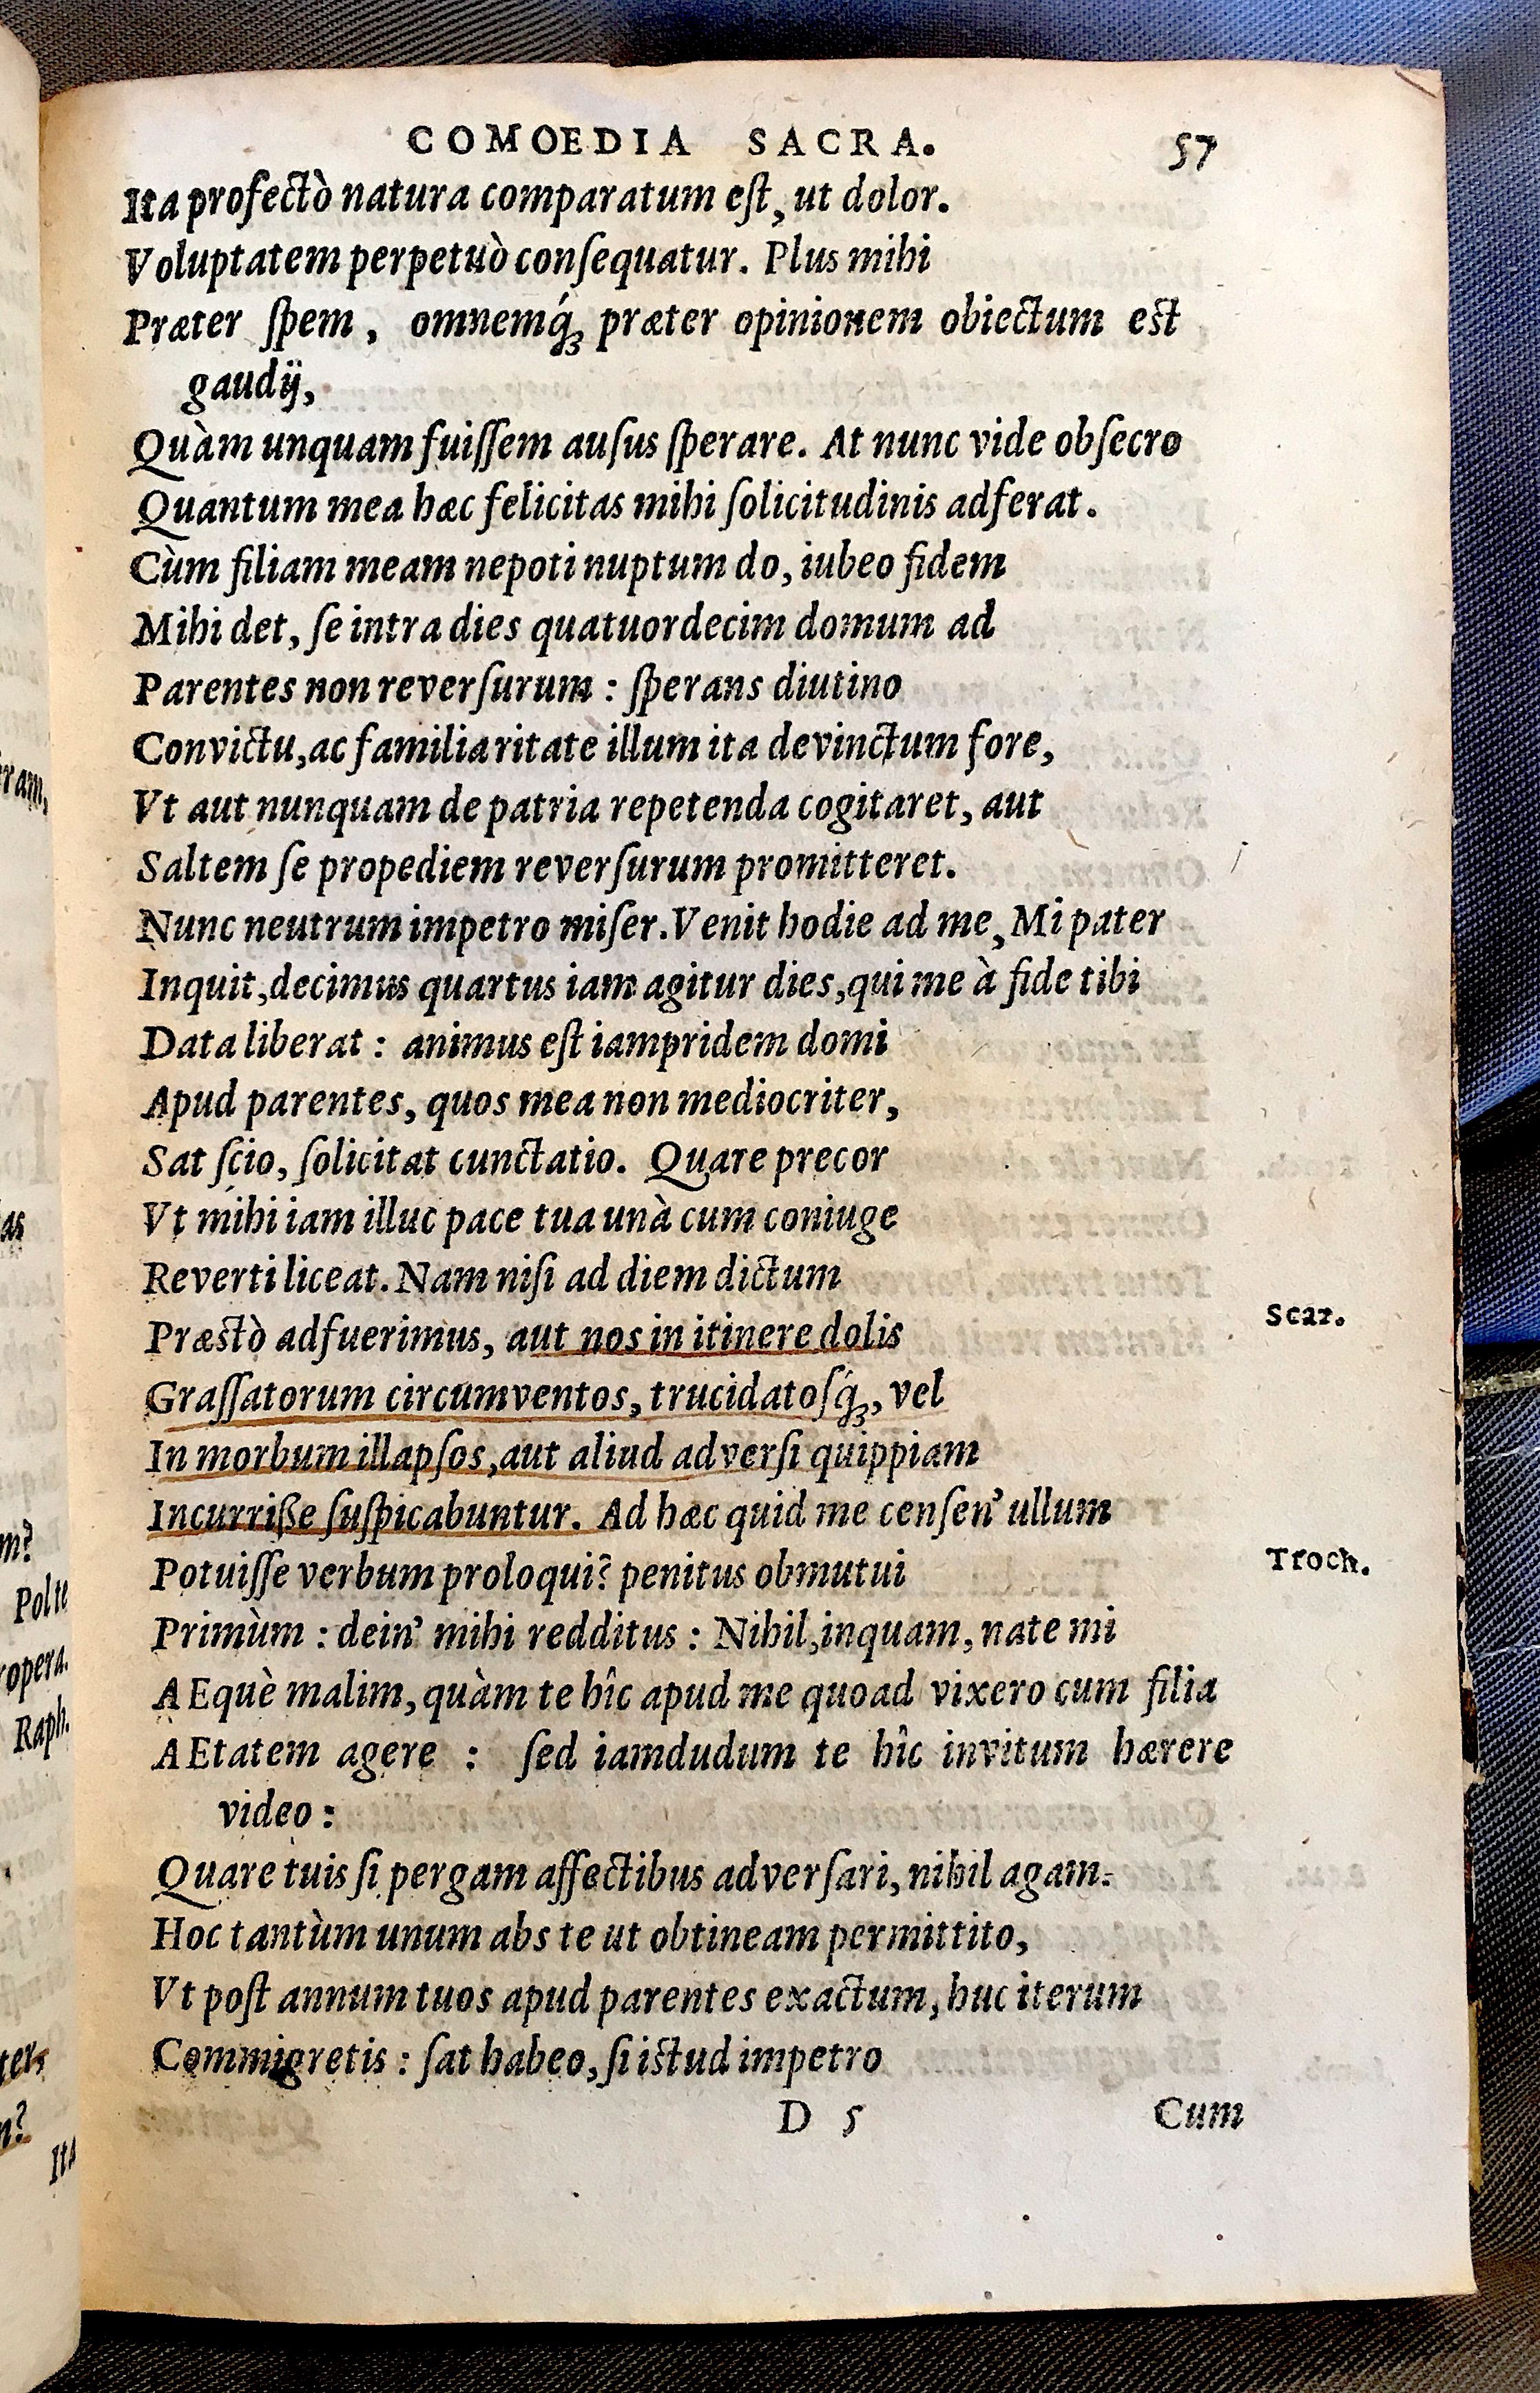 COMOEDIA SACRA. 57
Ita profectò natura comparatum eſt, ut dolor.
Voluptatem perpetuò conſequatur. Plus mihi
Præter ſpem, omnemq́ꝫ præter opinionem obiectum est
gaudij,
Quàm unquam fuiſſem auſus ſperare. At nunc vide obſecro
Quantum mea hæc felicitas mihi ſolicitudinis adferat.
Cùm filiam meam nepoti nuptum do, iubeo fidem
Mihi det, ſe intra dies quatuordecim domum ad
Parentes non reverſurum : ſperans diutino
Convictu, ac familiaritate illum ita devinctum fore,
Vt aut nunquam de patria repetenda cogitaret, aut
Saltem ſe propediem reverſurum promitteret.
Nunc neutrum impetro miſer. Venit hodie ad me, Mi pater
Inquit, decimus quartus iam agitur dies, qui me à fide tibi
Data liberat : animus eſt iampridem domi
Apud parentes, quos mea non mediocriter,
Sat ſcio, ſolicitat cunctatio. Quare precor
Vt mihi iam illuc pace tua unà cum coniuge
Reverti liceat. Nam niſi ad diem dictum
Præstò adfuerimus, aut nos in itinere dolis Scaz.
Graſſatorum circumventos, trucidatoſq́ꝫ, vel
In morbum illapſos, aut aliud adverſi quippiam
Incurriße ſuſpicabuntur. Ad hæc quid me cenſen' ullum
Potuiſſe verbum proloqui? penitus obmutui Troch.
Primùm : dein' mihi redditus : Nihil, inquam, nate mi
AEquè malim, quàm te hîc apud me quoad vixero cum filia
AEtatem agere : ſed iamdudum te hîc invitum hærere
video :
Quare tuis ſi pergam affectibus adverſari, nihil agam.
Hoc tantùm unum abs te ut obtineam permittito,
Vt poſt annum tuos apud parentes exactum, huc iterum
Commigretis : ſat habeo, ſi istud impetro
D 5 Cum